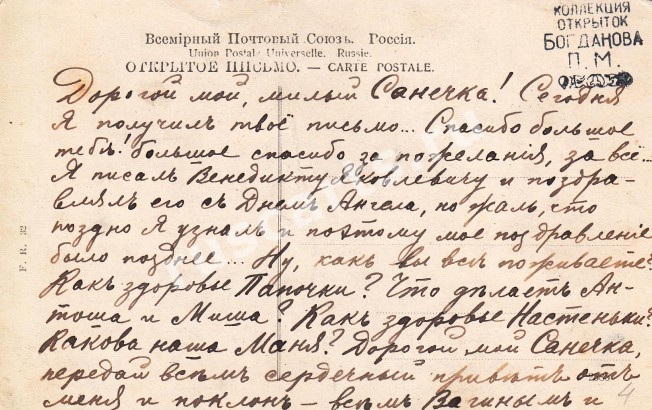 КОЛЛЕКЦИЯ
ОТКРЫТОК
БОГДАНОВА
П. М.
Всемірный Почтовый Союзъ. Россія.
Union Postale Universelle. Russie.
ОТКРЫТОЕ ПИСЬМО. — CARTE POSTALE.
Дорогой мой, милый Санечка! Сегодня
Я получилъ твоё письмо... Спасибо большое
тебѣ! большое спасибо за пожеланія, за всё...
Я писалъ Венедикту Яковлевичу и поздра-
влялъ его съ Днемъ Ангела, но жаль, что
поздно Я узналъ и поэтому мое поздравленіе
было позднее... Ну, какъ вы всѣ поживаете?
Какъ здоровье Папочки? Что дѣлаетъ Ан-
тоша и Миша? Какъ здоровье Настеньки?
Какова наша Маня? Дорогой мой Санечка,
передай всѣмъ сердечный привѣтъ отъ
меня и поклонъ — всѣмъ Вагинымъ и
4
F. R. 32